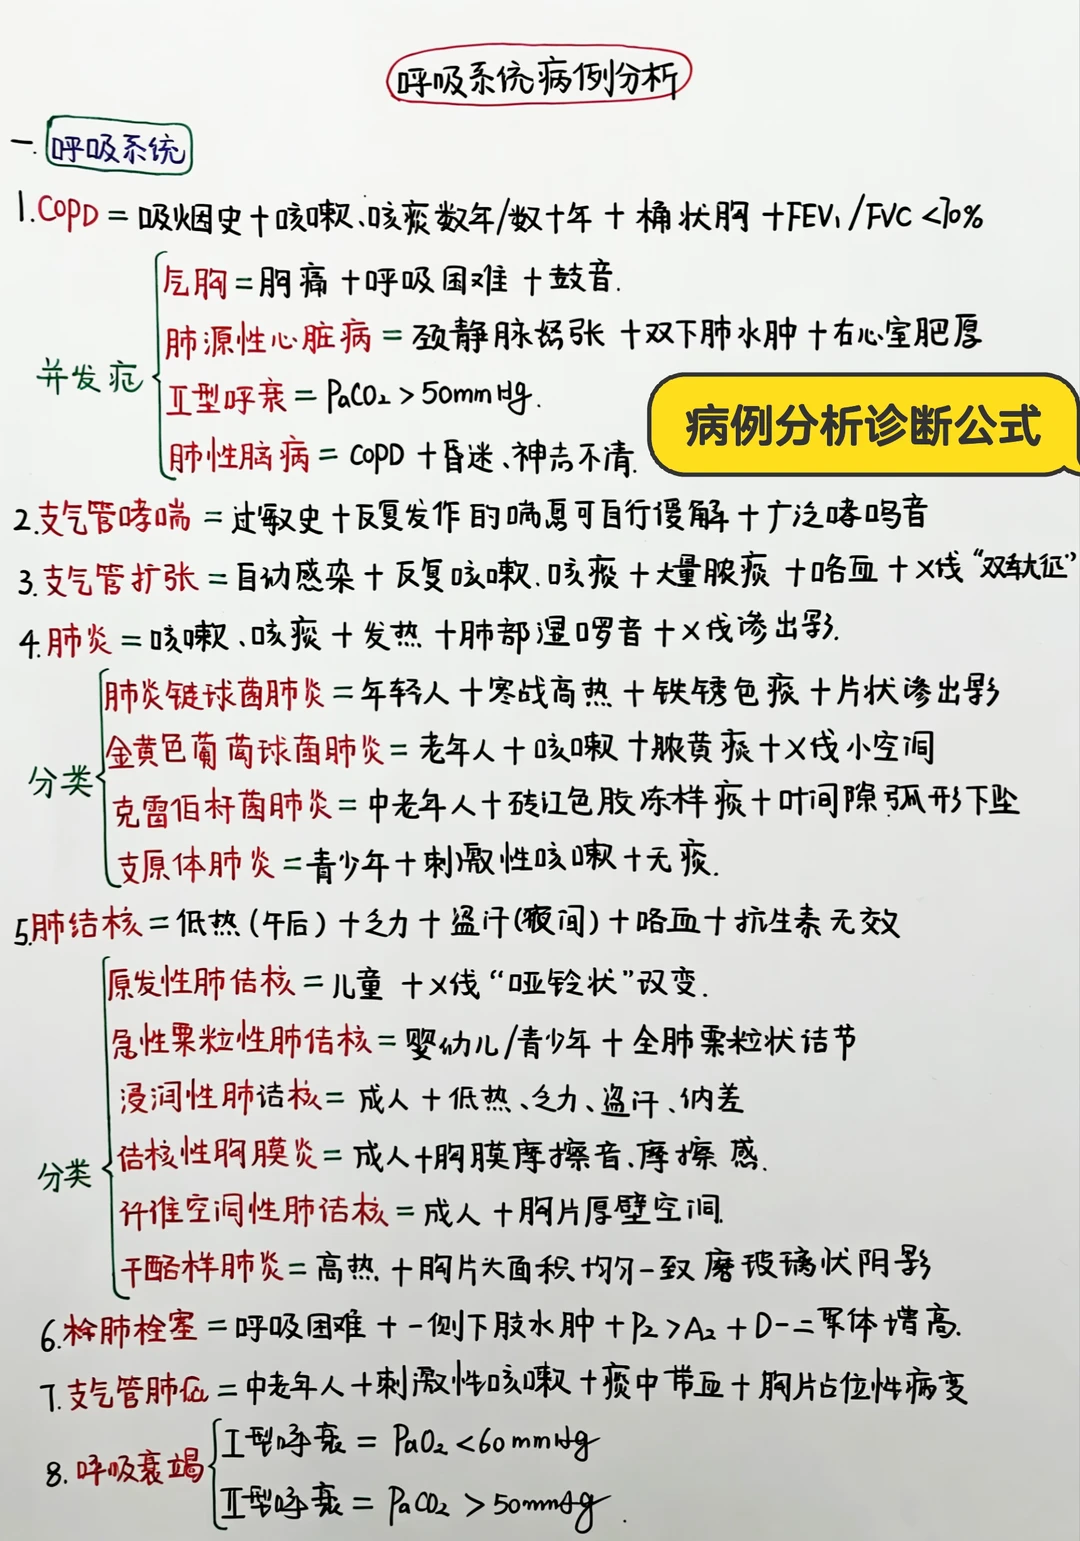 呼吸系统病例分析
一. 呼吸系统
1. COPD = 吸烟史 + 咳嗽、咳痰数年/数十年 + 桶状胸 + FEV₁/FVC <70%
并发症
气胸 = 胸痛 + 呼吸困难 + 鼓音.
肺源性心脏病 = 颈静脉怒张 + 双下肺水肿 + 右心室肥厚
II型呼衰 = PaCO₂ > 50mmHg.
肺性脑病 = COPD + 昏迷、神志不清.
病例分析诊断公式
2. 支气管哮喘 = 过敏史 + 反复发作的喘息可自行缓解 + 广泛哮鸣音
3. 支气管扩张 = 自幼感染 + 反复咳嗽、咳痰 + 大量脓痰 + 咯血 + X线“双轨征”
4. 肺炎 = 咳嗽、咳痰 + 发热 + 肺部湿啰音 + X线渗出影.
分类
肺炎链球菌肺炎 = 年轻人 + 寒战高热 + 铁锈色痰 + 片状渗出影
金黄色葡萄球菌肺炎 = 老年人 + 咳嗽 + 脓黄痰 + X线小空洞
克雷伯杆菌肺炎 = 中老年人 + 砖红色胶冻样痰 + 叶间隙弧形下坠
支原体肺炎 = 青少年 + 刺激性咳嗽 + 无痰.
5. 肺结核 = 低热(午后) + 乏力 + 盗汗(夜间) + 咯血 + 抗生素无效
分类
原发性肺结核 = 儿童 + X线“哑铃状”改变.
急性粟粒性肺结核 = 婴幼儿/青少年 + 全肺粟粒状结节
浸润性肺结核 = 成人 + 低热、乏力、盗汗、纳差
结核性胸膜炎 = 成人 + 胸膜摩擦音、摩擦感.
纤维空洞性肺结核 = 成人 + 胸片厚壁空洞.
干酪样肺炎 = 高热 + 胸片大面积、均匀一致磨玻璃状阴影
6. 栓肺栓塞 = 呼吸困难 + 一侧下肢水肿 + P₂>A₂ + D-二聚体增高.
7. 支气管肺癌 = 中老年人 + 刺激性咳嗽 + 痰中带血 + 胸片占位性病变
8. 呼吸衰竭
I型呼衰 = PaO₂ < 60mmHg
II型呼衰 = PaCO₂ > 50mmHg.